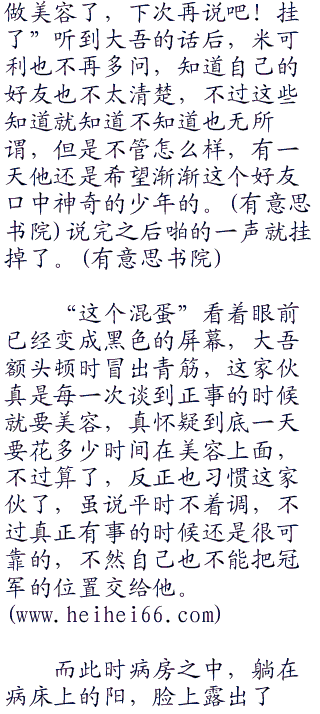 做美容了，下次再说吧！挂
了”听到大吾的话后，米可
利也不再多问，知道自己的
好友也不太清楚，不过这些
知道就知道不知道也无所
谓，但是不管怎么样，有一
天他还是希望渐渐这个好友
口中神奇的少年的。(有意思
书院)说完之后啪的一声就挂
掉了。(有意思书院)
“这个混蛋”看着眼前
已经变成黑色的屏幕，大吾
额头顿时冒出青筋，这家伙
真是每一次谈到正事的时候
就要美容，真怀疑到底一天
要花多少时间在美容上面，
不过算了，反正也习惯这家
伙了，虽说平时不着调，不
过真正有事的时候还是很可
靠的，不然自己也不能把冠
军的位置交给他。
(www.heihei66.com)
而此时病房之中，躺在
病床上的阳，脸上露出了